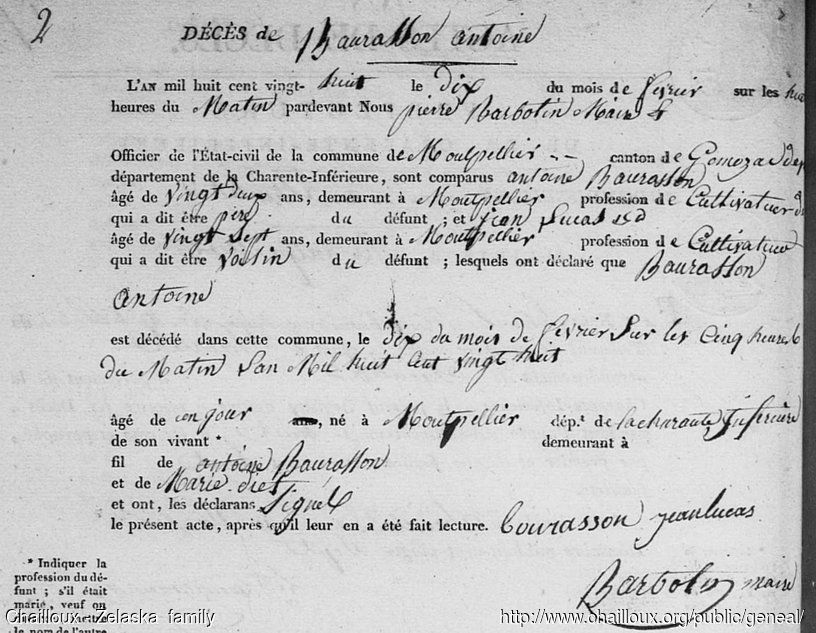 2
DÉCÈS de Baurasson antoine
L'AN mil huit cent vingt-huit le dix du mois de février sur les huit
heures du Matin pardevant Nous pierre Barbotin Maire &
Officier de l'État-civil de la commune de Moulpellier -- canton de Gemozac dep
département de la Charente-Inférieure, sont comparus antoine Baurasson
âgé de vingt deux ans, demeurant à Montpellier profession de Cultivateur
qui a dit être père du défunt ; et jean Lucas
âgé de vingt sept ans, demeurant à Montpellier profession de Cultivateur
qui a dit être voisin du défunt ; lesquels ont déclaré que Baurasson
antoine
est décédé dans cette commune, le dix du mois de février Sur les Cinq heures
du Matin Lan Mil huit Cent vingt huit
âgé de un jour ans, né à Montpellier dép.t de la charante Inferieure
de son vivant * demeurant à
fil de antoine Baurasson
et de Marie
et ont, les déclarans Signé
le présent acte, après qu'il leur en a été fait lecture. bourasson jean lucas
Barbotin maire
* Indiquer la
profession du dé-
funt ; s'il était
marié, veuf ou
le nom de l'autre
Chailloux Zelaska family
http://www.chailloux.org/public/geneal/